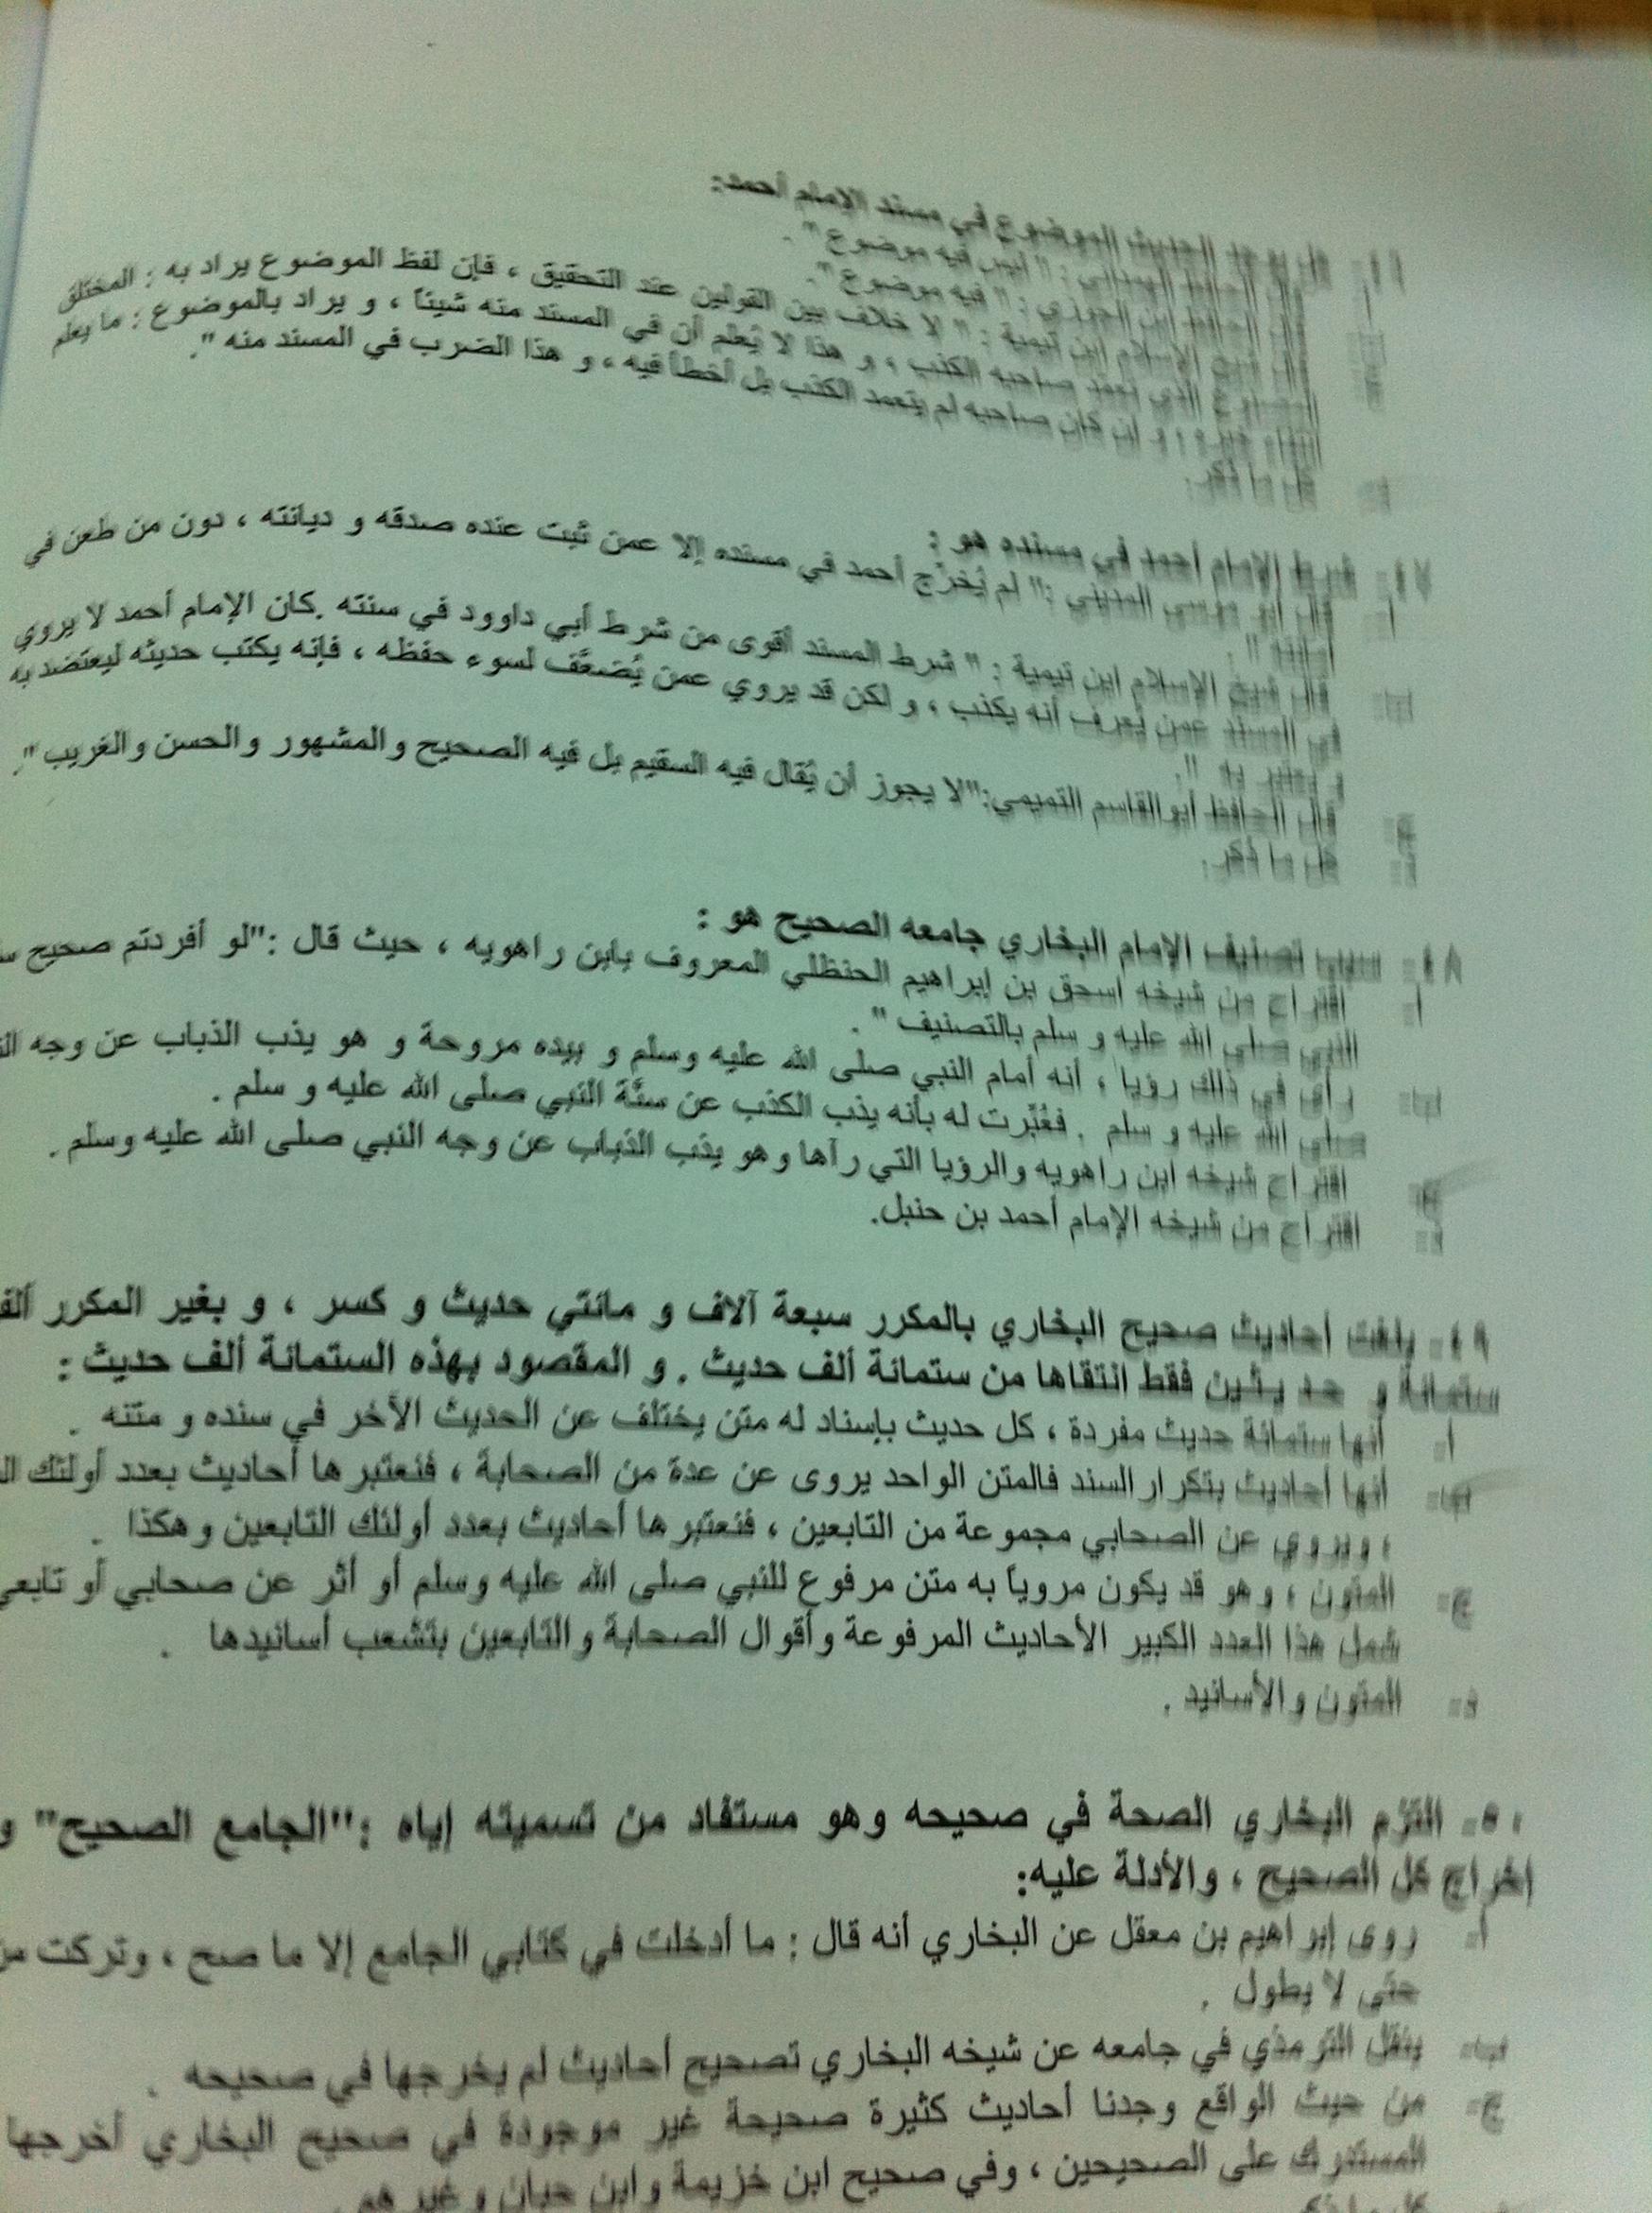 ٤٦- هل يوجد الحديث الموضوع في مسند الإمام أحمد:
أ- قال الحافظ الهمذاني : " ليس فيه موضوع " .
ب- قال الحافظ ابن الجوزي : " فيه موضوع ".
ج- قال شيخ الإسلام ابن تيمية : " لا خلاف بين القولين عند التحقيق ، فإن لفظ الموضوع يراد به : المختلق
المصنوع الذي تعمد صاحبه الكذب ، و هذا لا يُعلم أن في المسند منه شيئاً ، و يراد بالموضوع : ما يعلم
انتفاء خبره ، و إن كان صاحبه لم يتعمد الكذب بل أخطأ فيه ، و هذا الضرب في المسند منه ".
د- كل ما ذكر.
٤٧- شرط الإمام أحمد في مسنده هو :
أ- قال أبو موسى المديني :" لم يُخرّج أحمد في مسنده إلا عمن ثبت عنده صدقه و ديانته ، دون من طعن في
أمانته ".
ب- قال شيخ الإسلام ابن تيمية : " شرط المسند أقوى من شرط أبي داوود في سننه .كان الإمام أحمد لا يروي
في المسند عمن يُعرف أنه يكذب ، و لكن قد يروي عمن يُضعَّف لسوء حفظه ، فإنه يكتب حديثه ليعتضد به
و يعتبر به ".
ج- قال الحافظ أبوالقاسم التميمي:"لا يجوز أن يُقال فيه السقيم بل فيه الصحيح والمشهور والحسن والغريب ".
د- كل ما ذكر.
٤٨- سبب تصنيف الإمام البخاري جامعه الصحيح هو :
أ- اقتراح من شيخه اسحق بن إبراهيم الحنظلي المعروف بابن راهويه ، حيث قال :"لو أفردتم صحيح
النبي صلى الله عليه و سلم بالتصنيف " .
ب- رأى في ذلك رؤيا ، أنه أمام النبي صلى الله عليه وسلم و بيده مروحة و هو يذب الذباب عن وجه
صلى الله عليه و سلم . فعُبِّرت له بأنه يذب الكذب عن سنَّة النبي صلى الله عليه و سلم .
ج- اقتراح شيخه ابن راهويه والرؤيا التي رآها وهو يذب الذباب عن وجه النبي صلى الله عليه وسلم .
د- اقتراح من شيخه الإمام أحمد بن حنبل.
٤٩- بلغت أحاديث صحيح البخاري بالمكرر سبعة آلاف و مائتي حديث و كسر ، و بغير المكرر
ستمائة و حديثين فقط انتقاها من ستمائة ألف حديث . و المقصود بهذه الستمائة ألف حديث :
أ- أنها ستمائة حديث مفردة ، كل حديث بإسناد له متن يختلف عن الحديث الآخر في سنده و متنه .
ب- أنها أحاديث بتكرار السند فالمتن الواحد يروى عن عدة من الصحابة ، فنعتبرها أحاديث بعدد أولئك
، ويروي عن الصحابي مجموعة من التابعين ، فنعتبرها أحاديث بعدد أولئك التابعين وهكذا .
ج- المتون ، وهو قد يكون مروياً به متن مرفوع للنبي صلى الله عليه وسلم أو أثر عن صحابي أو تابعي
شمل هذا العدد الكبير الأحاديث المرفوعة وأقوال الصحابة والتابعين بتشعب أسانيدها .
د- المتون والأسانيد .
٥٠- التزم البخاري الصحة في صحيحه وهو مستفاد من تسميته إياه :"الجامع الصحيح" و
إخراج كل الصحيح ، والأدلة عليه:
أ- روى إبراهيم بن معقل عن البخاري أنه قال : ما أدخلت في كتابي الجامع إلا ما صح ، وتركت من
حتى لا يطول .
ب- ينقل الترمذي في جامعه عن شيخه البخاري تصحيح أحاديث لم يخرجها في صحيحه .
ج- من حيث الواقع وجدنا أحاديث كثيرة صحيحة غير موجودة في صحيح البخاري أخرجها
المستدرك على الصحيحين ، وفي صحيح ابن خزيمة وابن حبان وغيرهم .